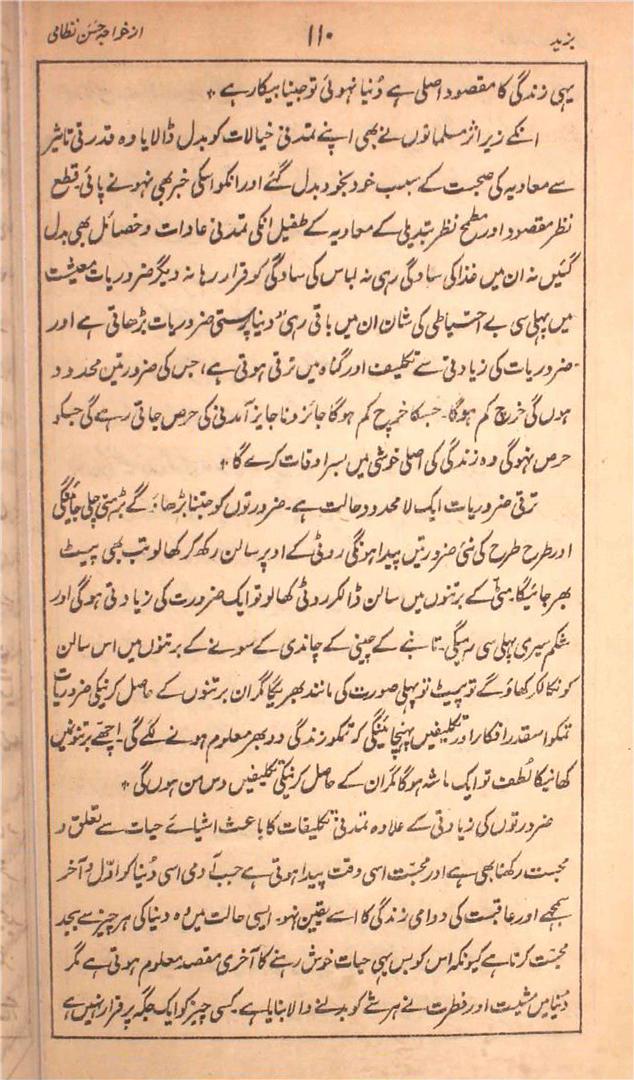 یزید
۱۱۰
از خواجہ حسن نظامی
یہی زندگی کا مقصود اصلی ہے دُنیا نہوئی تو جینا بیکار ہے ۔
انکے زیر اثر مسلمانوں نے بھی اپنے تمدنی خیالات کو بدل ڈالا یا وہ قدرتی تاثیر
سے معاویہ کی صحبت کے سبب خود بخود بدل گئے اور انکو اسکی خبر بھی نہونے پائی۔ قطع
نظر مقصود اور مطمح نظر تبدیلی کے معاویہ کے طفیل انکی تمدنی عادات و خصائل بھی بدل
گئیں نہ ان میں غذا کی سادگی رہی نہ لباس کی سادگی کو قرار رہا نہ دیگر ضروریات معیشت
میں پہلی سی بے احتیاطی کی شان ان میں باقی رہی۔ دنیا پرستی ضروریات بڑھاتی ہے اور
ضروریات کی زیادتی سے تکلیف اور گناہ میں ترقی ہوتی ہے، جس کی ضرورتیں محدود
ہوں گی خرچ کم ہوگا۔ جسکا خرچ کم ہوگا جائز و ناجایز آمدنی کی حرص جاتی رہے گی جسکو
حرص نہوگی وہ زندگی کی اصلی خوشی میں بسر اوقات کرے گا ۔
ترقی ضروریات ایک لا محدود حالت ہے۔ ضرورتوں کو جتنا بڑھاؤ گے بڑھتی چلی جائینگی
اور طرح طرح کی نئی ضرورتیں پیدا ہونگی روٹی کے اوپر سالن رکھ کر کھا لو تب بھی پیٹ
بھر جائیگا۔ مٹی کے برتنوں میں سالن ڈالکر روٹی کھا لو تو ایک ضرورت کی زیادتی ہوگی اور
شکم سیری پہلی سی رہیگی۔ تانبے کے چینی کے چاندی کے سونے کے برتنوں میں اس سالن
کو نکالکر کھاؤ گے تو پیٹ تو پہلی صورت کی مانند بھریگا مگر ان برتنوں کے حاصل کرنیکی ضروریات
تمکو اسقدر افکار اور تکلیفیں پہنچائینگی کہ تمکو زندگی دوبھر معلوم ہونے لگے گی۔ اچھے برتنونمیں
کھانیکا لُطف تو ایک ماشہ ہوگا مگر ان کے حاصل کرنیکی تکلیفیں دس من ہوں گی ۔
ضرورتوں کی زیادتی کے علاوہ تمدنی تکلیفات کا باعث اشیائے حیات سے تعلق و
محبت رکھنا بھی ہے اور محبت اسی وقت پیدا ہوتی ہے جب آدمی اسی دُنیا کو اوّل و آخر
سمجھے اور عاقبت کی دوامی زندگی کا اسے یقین نہو۔ ایسی حالت میں وہ دنیا کی ہر چیز سے بیحد
محبت کرتا ہے کیونکہ اس کو بس یہی حیات خوش رہنے کا آخری مقصد معلوم ہوتی ہے مگر
دُنیا میں مشیت اور فطرت نے ہر شے کو بدلنے والا بنایا ہے۔ کسی چیز کو ایک جگہ پر قرار نہیں ہے